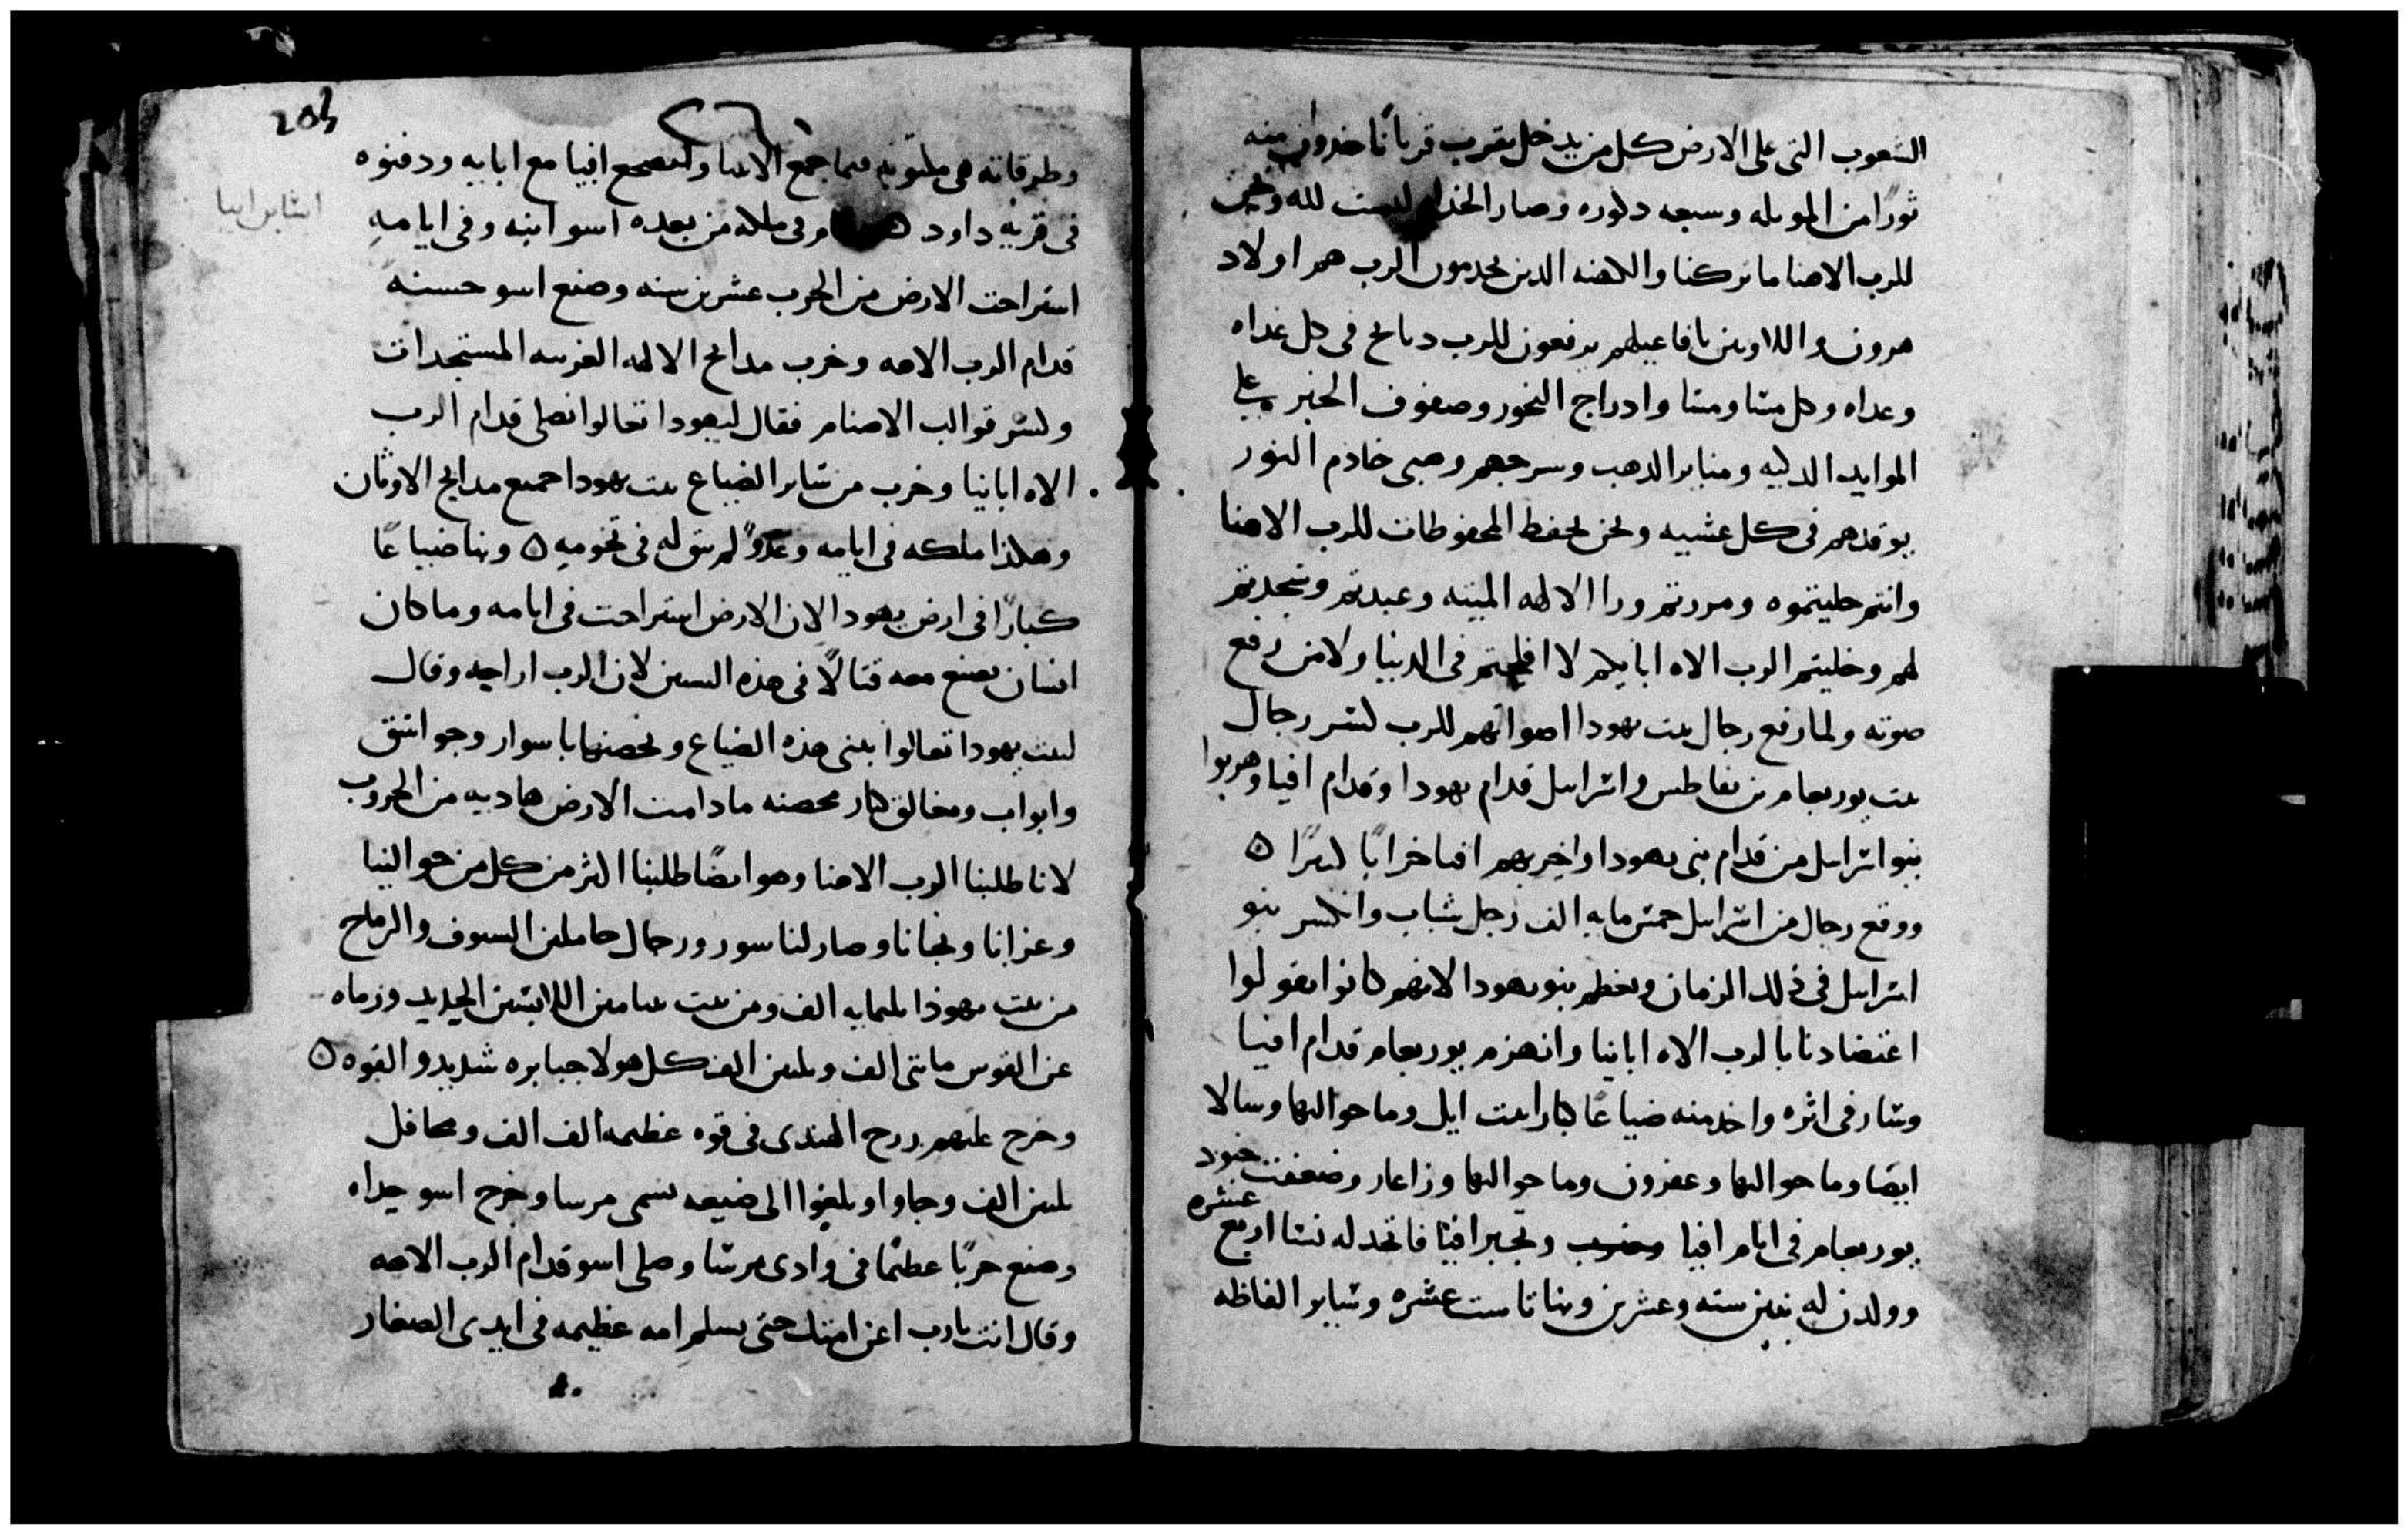 الشعوب التى على الارض كل من يدخل يقرب قربانا خدوا منه
ثورا من الموبله وسبعه دكوره وصار الخدام ليست لله ونحن
للرب الاهنا ما تركنا والكهنه الدين يخدمون الرب هم اولاد
هرون واللاويين بافاعيلهم يرفعون للرب دبايح فى كل غداه
وغداه وكل مسا ومسا وادراج البخور وصفوف الخبز على
الموايد الدكيه ومناير الدهب وسرجهم وهى خادم النور
يوقدهم فى كل عشيه ونحن نحفظ المحفوظات للرب الاهنا
وانتم خليتموه ومررتم ورا الالهه الميته وعبدتم وسجدتم
لهم وخليتم الرب الاه ابايكم لا افلحتم فى الدنيا ولا من رفع
صوته ولما رفع رجال بيت يهودا اصواتهم للرب كسر رجال
بيت يوربعام بن نفاطس واسراييل قدام يهودا وقدام افيا وهربوا
بنو اسراييل من قدام بنى يهودا واخربهم افيا خرابا كبيرا ه
ووقع رجال من اسراييل خمس مايه الف رجل شباب وانكسر بنو
اسراييل فى ذلك الزمان وتعظم بنو يهودا لانهم كانوا يقولوا
اعتضادنا بالرب الاه ابانيا وانهزم يوربعام قدام افيا
وسار فى اثره واخد منه ضياعا كبارا بيت ايل وما حواليها وسالا
ايضا وما حواليها وعفرون وما حواليها وزاعار وضعفت جنود
يوربعام فى ايام افيا وتجبر افيا فاتخد له نسا اربع عشره
وولدن له بنين ستة وعشرين وبناتا ست عشره وساير الفاظه
203
وطرقاته هى مكتوبه فيما جمع الانبيا واضطجع افيا مع ابايه ودفنوه
اسا بن ابيا
فى قريه داود وفى ملكه من بعده اسو ابنه وفى ايامه
استراحت الارض من الحرب عشرين سنه وصنع اسو حسنه
قدام الرب الاهه وخرب مدابح الالهه الغريبه المستجدات
وكسر قوالب الاصنام فقال ليهودا تعالوا نصلى قدام الرب
الاه ابانيا وخرب من ساير الضياع بيت يهودا جميع مدابح الاوثان
وهكذا ملكه فى ايامه وعدوا لم يبق له فى تخومه ه وبنا ضياعا
كبارا فى ارض يهودا لان الارض استراحت فى ايامه وما كان
انسان يصنع معه قتالا فى هذه السنين لان الرب اراحه وقال
لبيت يهودا تعالوا نبنى هذه الضياع ونحصنها باسوار وجواسق
وابواب ومغاليق كبار محصنه ما دامت الارض هاديه من الحروب
لانا طلبنا الرب الاهنا وهو ايضا طلبنا اكثر من كل من حوالينا
وعزانا ونجانا وصار لنا سور ورجال حاملين السيوف والرماح
من بيت يهوذا ثلثمايه الف ومن بيت بنيامين اللابسين الحديد ورماه
عن القوس مايتى الف وثلثين الف كل هولا جبابره شديدو القوه ه
وخرج عليهم زرح الهندى فى قوه عظيمه الف الف ومحافل
ثلثين الف وجاوا وبلغوا الى ضيعه تسمى مرسا وخرج اسو حداه
وصنع حربا عظيما فى وادى مرسا وصلى اسو قدام الرب الاهه
وقال انت يا رب اعن امتك حتى يسلم امه عظيمه فى ايدى الصغار